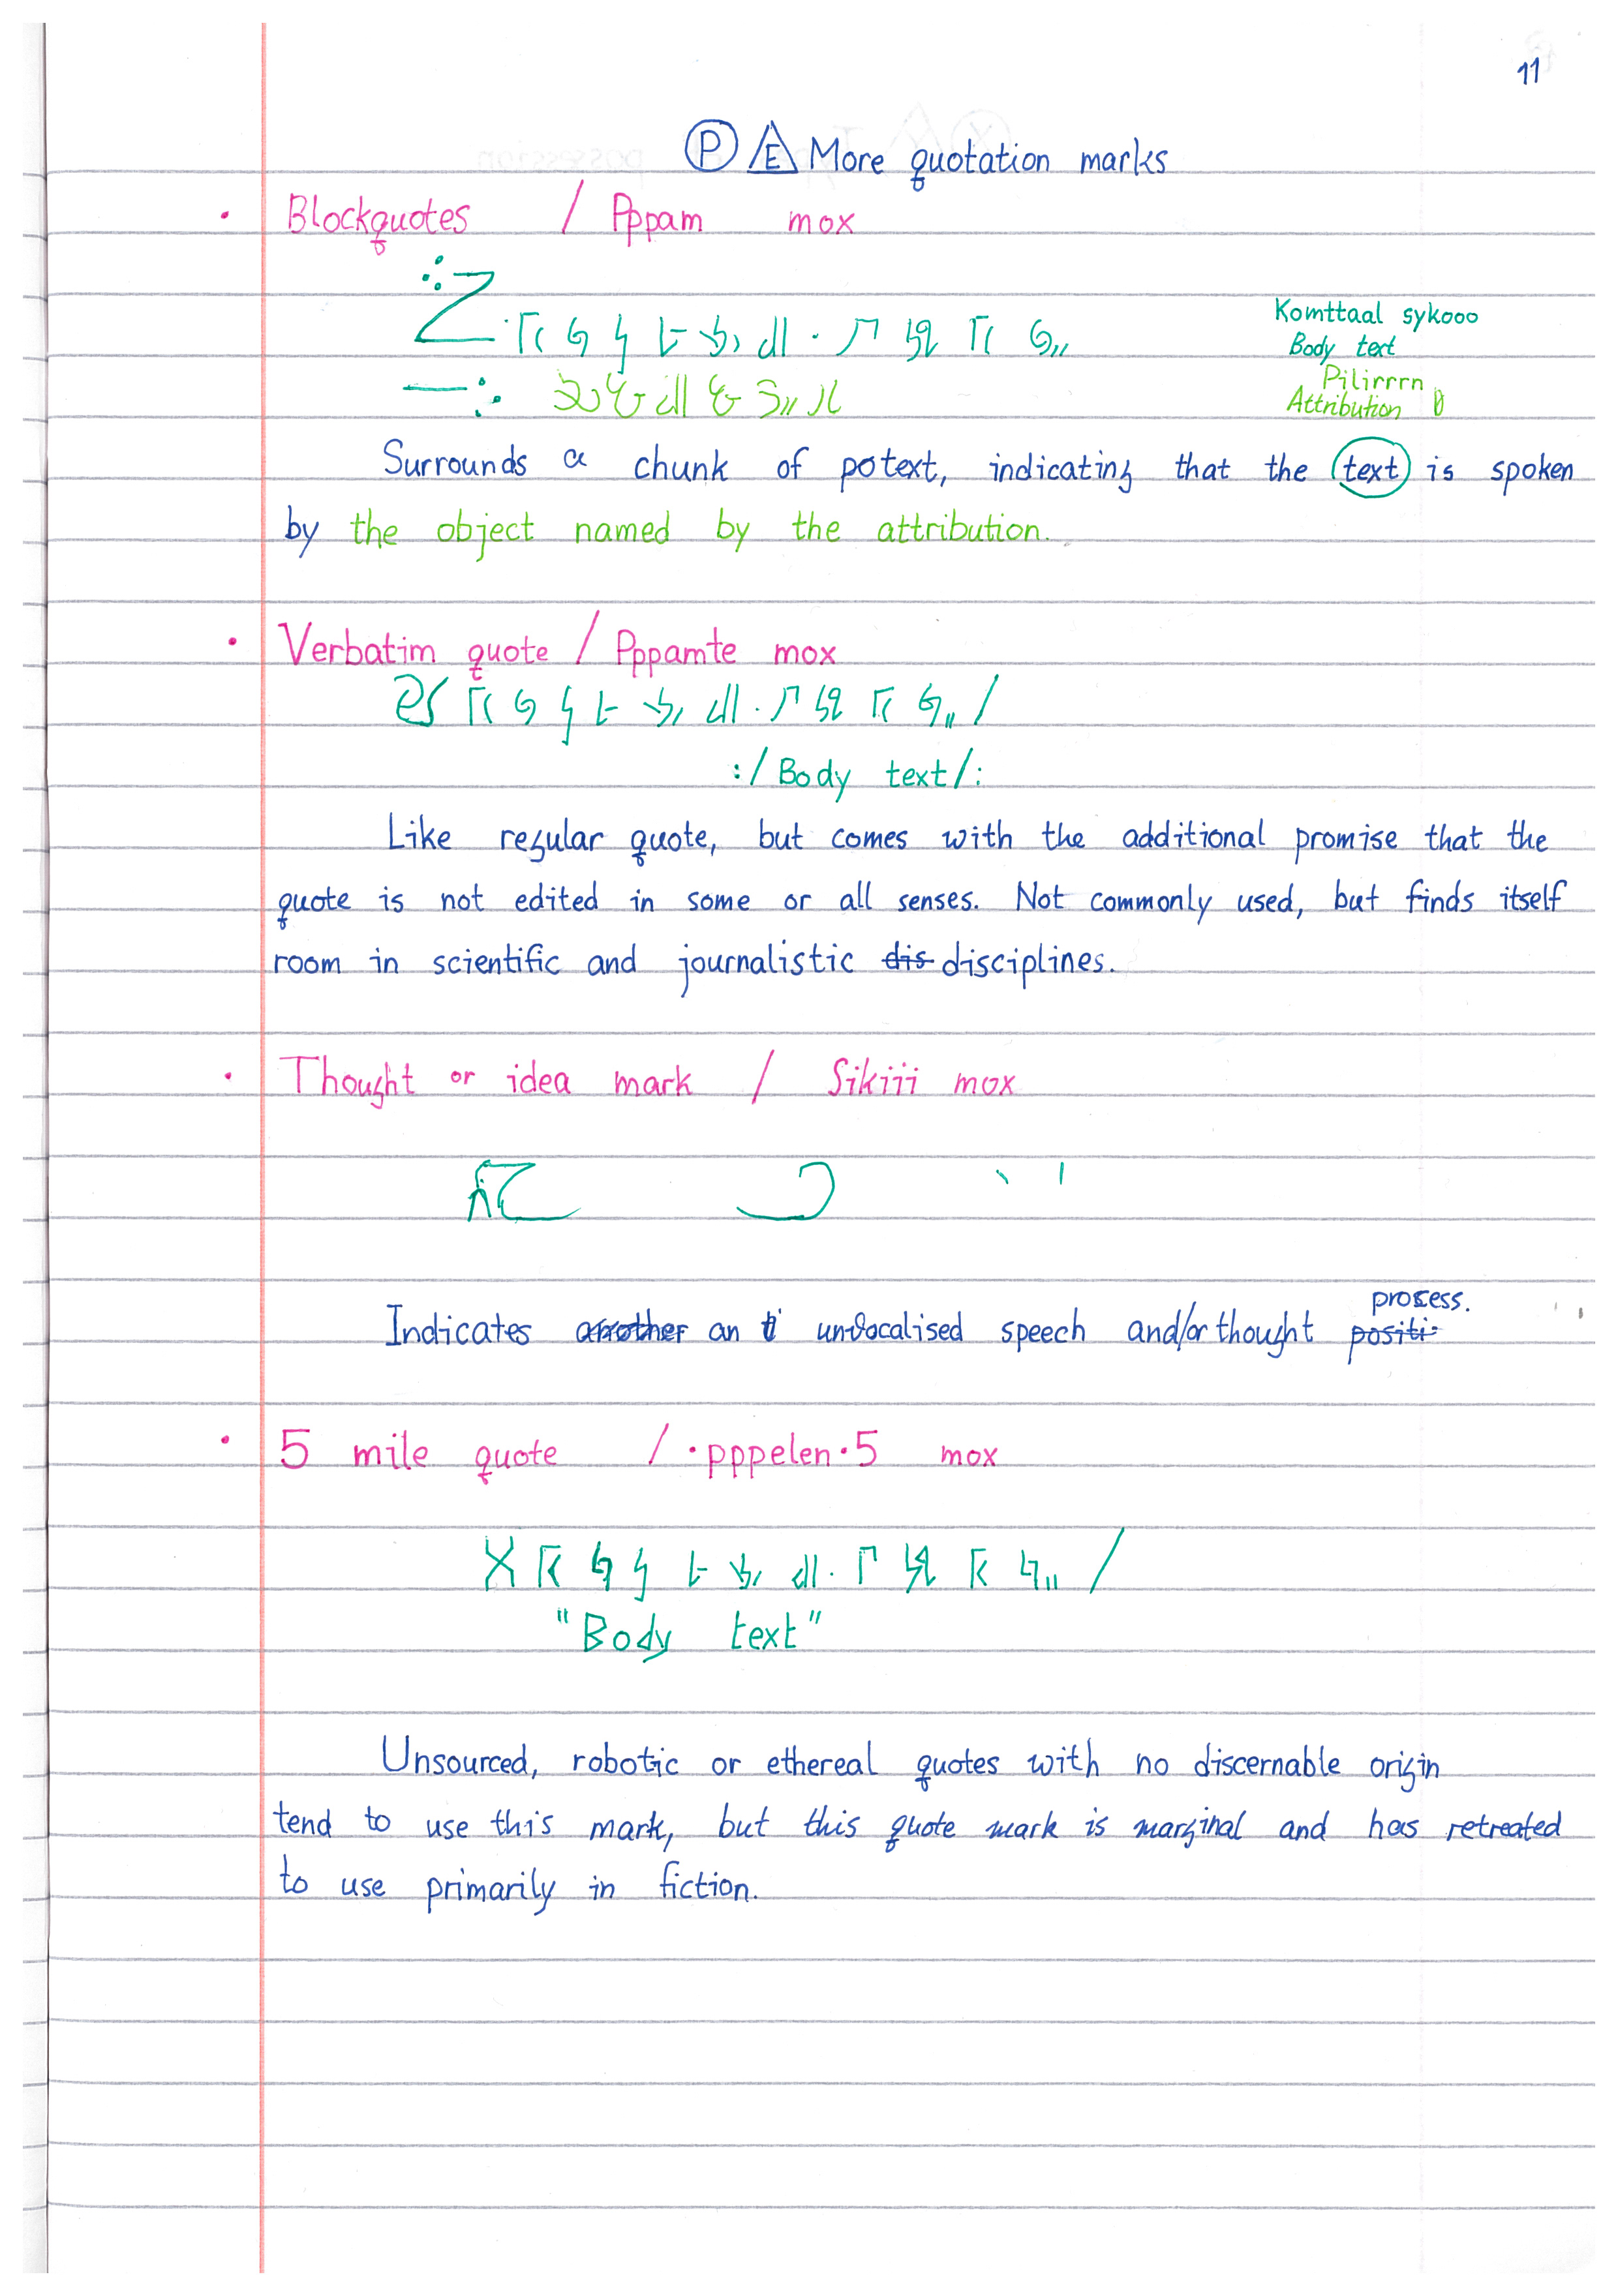 11
P E More quotation marks
· Blockquotes / Pppam mox
Komttaal sykooo
Body text
Pilirrrn
Attribution
Surrounds a chunk of potext, indicating that the text is spoken
by the object named by the attribution.
· Verbatim quote / Pppamte mox
:/ Body text /:
Like regular quote, but comes with the additional promise that the
quote is not edited in some or all senses. Not commonly used, but finds itself
room in scientific and journalistic dis disciplines.
· Thought or idea mark / Sikiii mox
process.
Indicates another an unvocalised speech and/or thought positi
· 5 mile quote / ·pppelen·5 mox
"Body text"
Unsourced, robotic or ethereal quotes with no discernable origin
tend to use this mark, but this quote mark is marginal and has retreated
to use primarily in fiction.